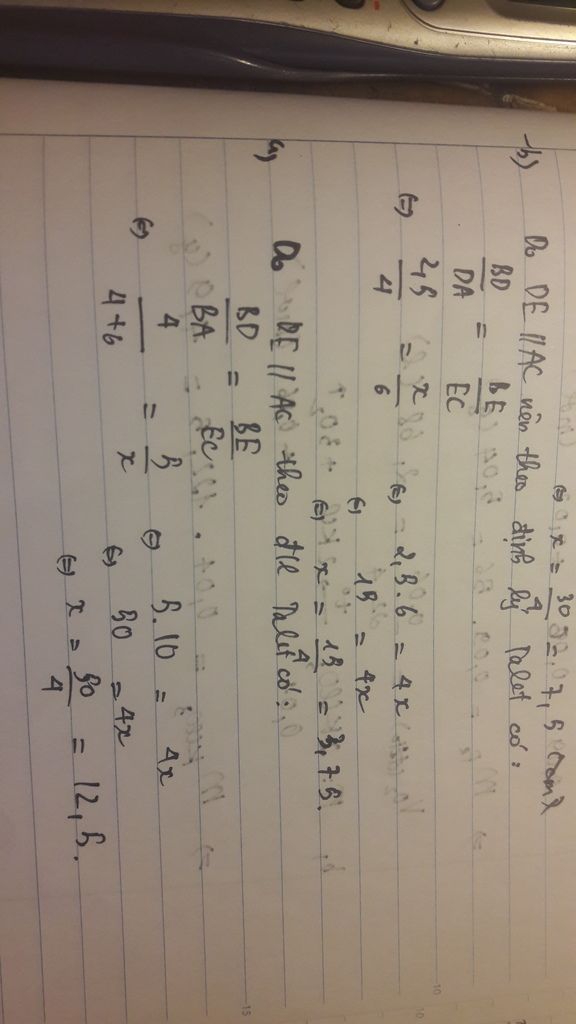 ⇔ x = 30/4 = 7,5 (cm)
b) Do DE // AC nên theo định lý Talet có:
BD/DA = BE/EC
⇔ 2,5/4 = x/6 ⇔ 2,5.6 = 4x
⇔ 15 = 4x
⇔ x = 15/4 = 3,75.
a) Do DE // AC theo đ/l Talet có:
BD/BA = BE/EC
⇔ 4/4+6 = 5/x ⇔ 5.10 = 4x
⇔ 50 = 4x
⇔ x = 50/4 = 12,5.